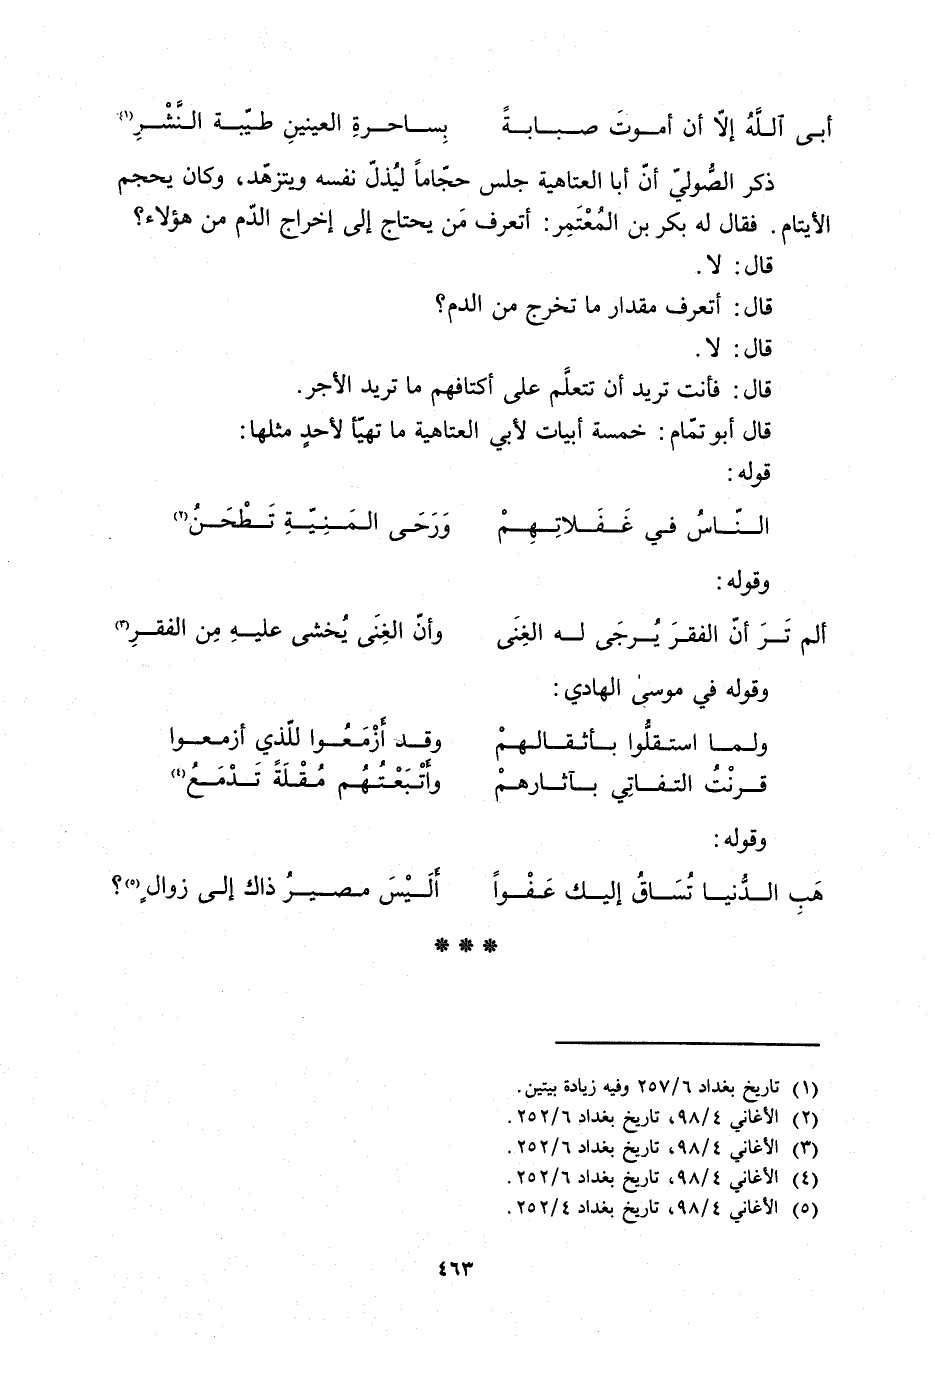 أبى ٱللَّهُ إلّا أن أموتَ صبابةً بِساحرةِ العينينِ طيّبة النَّشْرِ(١)
ذكر الصُّوليّ أنّ أبا العتاهية جلس حجّاماً ليُذلّ نفسه ويتزهّد، وكان يحجم
الأيتام. فقال له بكر بن المُعْتَمِر: أتعرف مَن يحتاج إلى إخراج الدّم من هؤلاء؟
قال: لا.
قال: أتعرف مقدار ما تخرج من الدم؟
قال: لا.
قال: فأنت تريد أن تتعلَّم على أكتافهم ما تريد الأجر.
قال أبو تمّام: خمسة أبيات لأبي العتاهية ما تهيّأ لأحدٍ مثلها:
قوله:
النّاسُ في غَفَلاتِهِمْ وَرَحَى المَنِيّةِ تَطْحَنُ(٢)
وقوله:
ألم تَرَ أنّ الفقرَ يُرجَى له الغِنَى وأنّ الغِنَى يُخشى عليهِ مِن الفقرِ(٣)
وقوله في موسىٰ الهادي:
ولما استقلُّوا بأثقالهمْ وقد أَزْمَعُوا للّذي أزمعوا
قرنْتُ التفاتي بآثارهمْ وأَتْبَعْتُهُم مُقْلَةً تَدْمَعُ(٤)
وقوله:
هَبِ الدُّنيا تُسَاقُ إليك عَفْواً أَلَيْسَ مصيرُ ذاك إلى زوالٍ(٥)؟
***
(١) تاريخ بغداد ٢٥٧/٦ وفيه زيادة بيتين.
(٢) الأغاني ٩٨/٤، تاريخ بغداد ٢٥٢/٦.
(٣) الأغاني ٩٨/٤، تاريخ بغداد ٢٥٢/٦.
(٤) الأغاني ٩٨/٤، تاريخ بغداد ٢٥٢/٦.
(٥) الأغاني ٩٨/٤، تاريخ بغداد ٢٥٢/٤.
٤٦٣